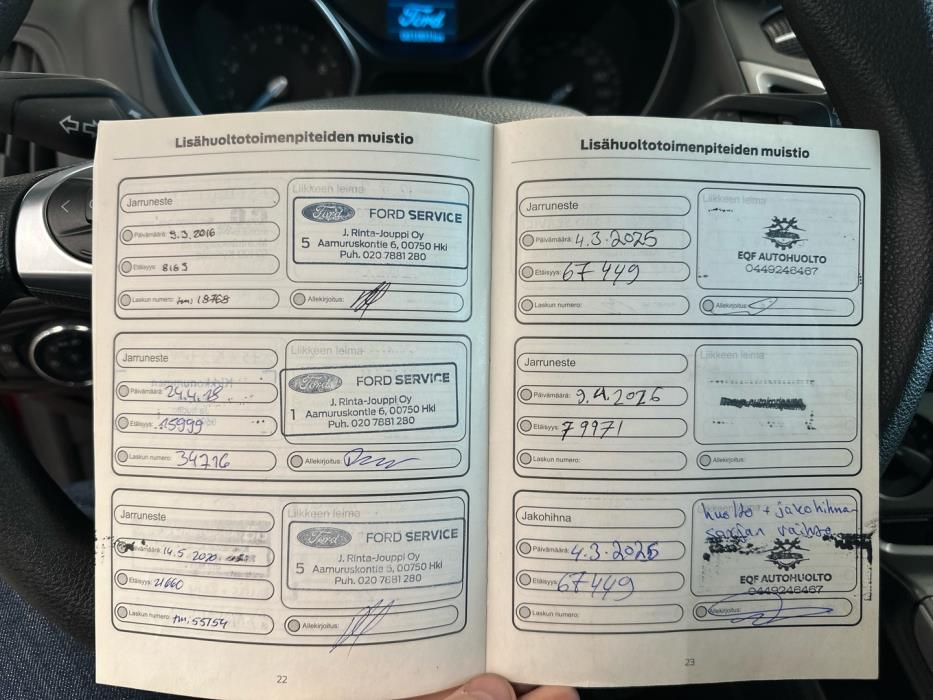 Ford
Lisähuoltotoimenpiteiden muistio
Jarruneste
Päivämäärä: 9.3.2016
Etäisyys: 8163
Laskun numero: tm: 18768
Liikkeen leima
Ford FORD SERVICE
J. Rinta-Jouppi Oy
5 Aamuruskontie 6, 00750 Hki
Puh. 020 7881 280
Allekirjoitus:
Jarruneste
Päivämäärä: 24.4.18
Etäisyys: 15999
Laskun numero: 34716
Liikkeen leima
Ford FORD SERVICE
J. Rinta-Jouppi Oy
1 Aamuruskontie 6, 00750 Hki
Puh. 020 7881 280
Allekirjoitus:
Jarruneste
Päivämäärä: 14.5.2020
Etäisyys: 21660
Laskun numero: tm: 55154
Liikkeen leima
Ford FORD SERVICE
J. Rinta-Jouppi Oy
5 Aamuruskontie 6, 00750 Hki
Puh. 020 7881 280
Allekirjoitus:
22
Lisähuoltotoimenpiteiden muistio
Jarruneste
Päivämäärä: 4.3.2025
Etäisyys: 67449
Laskun numero:
Liikkeen leima
EQF AUTOHUOLTO
0449246467
Allekirjoitus:
Jarruneste
Päivämäärä: 9.4.2026
Etäisyys: 79971
Laskun numero:
Liikkeen leima
Allekirjoitus:
Jakohihna
Päivämäärä: 4.3.2025
Etäisyys: 67449
Laskun numero:
huolto + jakohihna
sarjan vaihto
EQF AUTOHUOLTO
0449246467
Allekirjoitus:
23